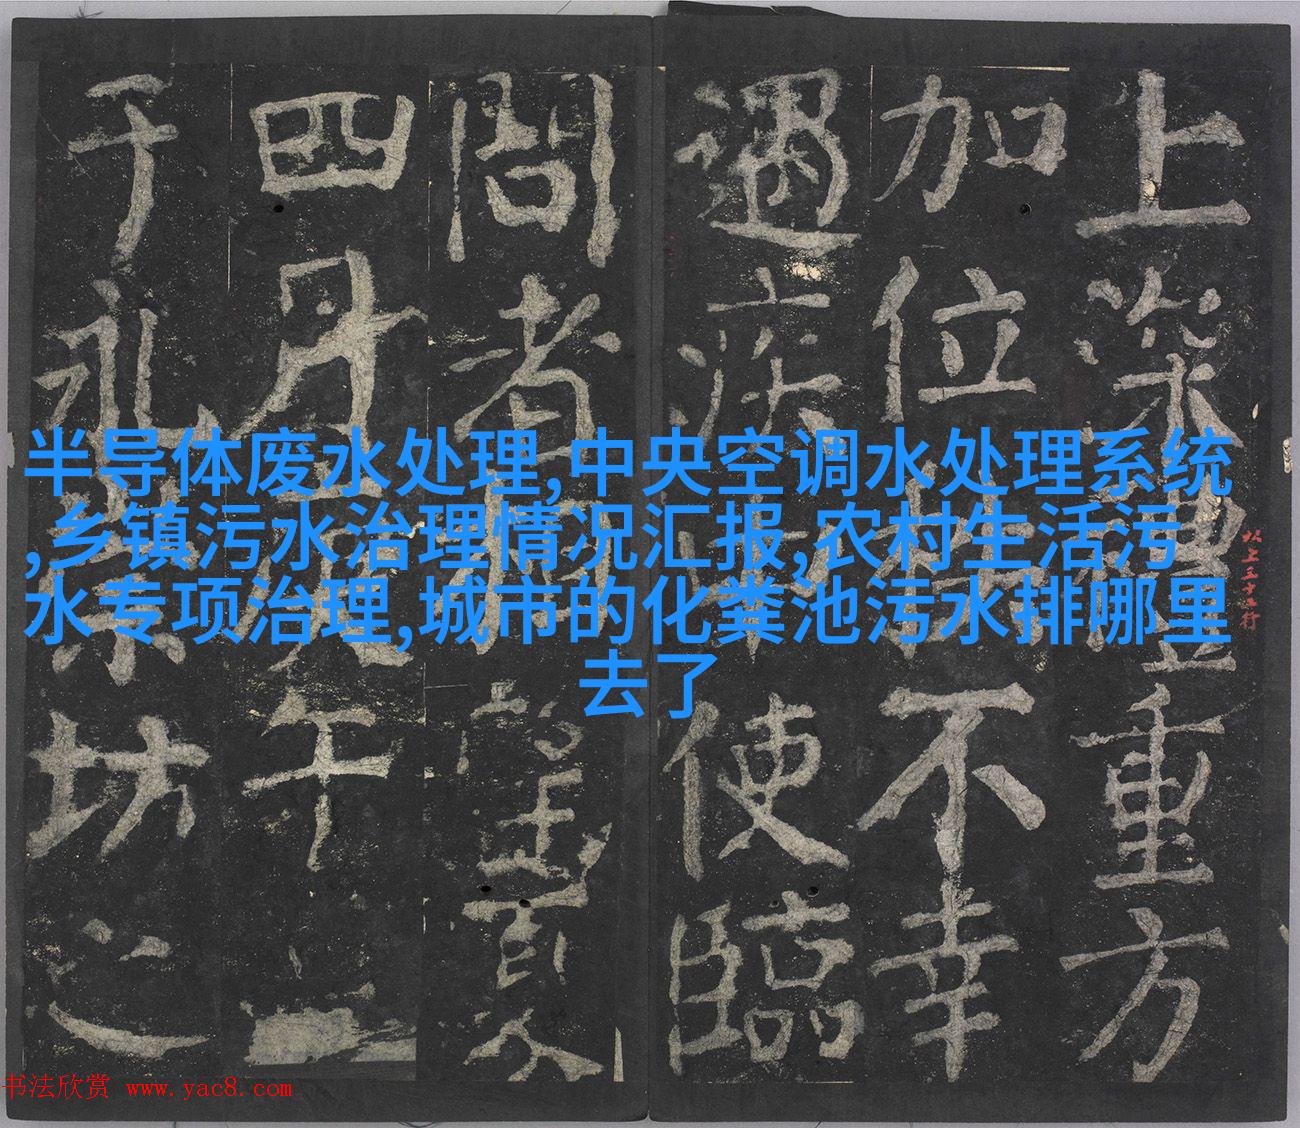 上深重方
加位不幸
遇疾使臨
問者
四月午
于永崇坊之
半导体废水处理,中央空调水处理系统
,乡镇污水治理情况汇报,农村生活污
水专项治理,城市的化粪池污水排哪里
去了
书法欣赏 www.yac8.com